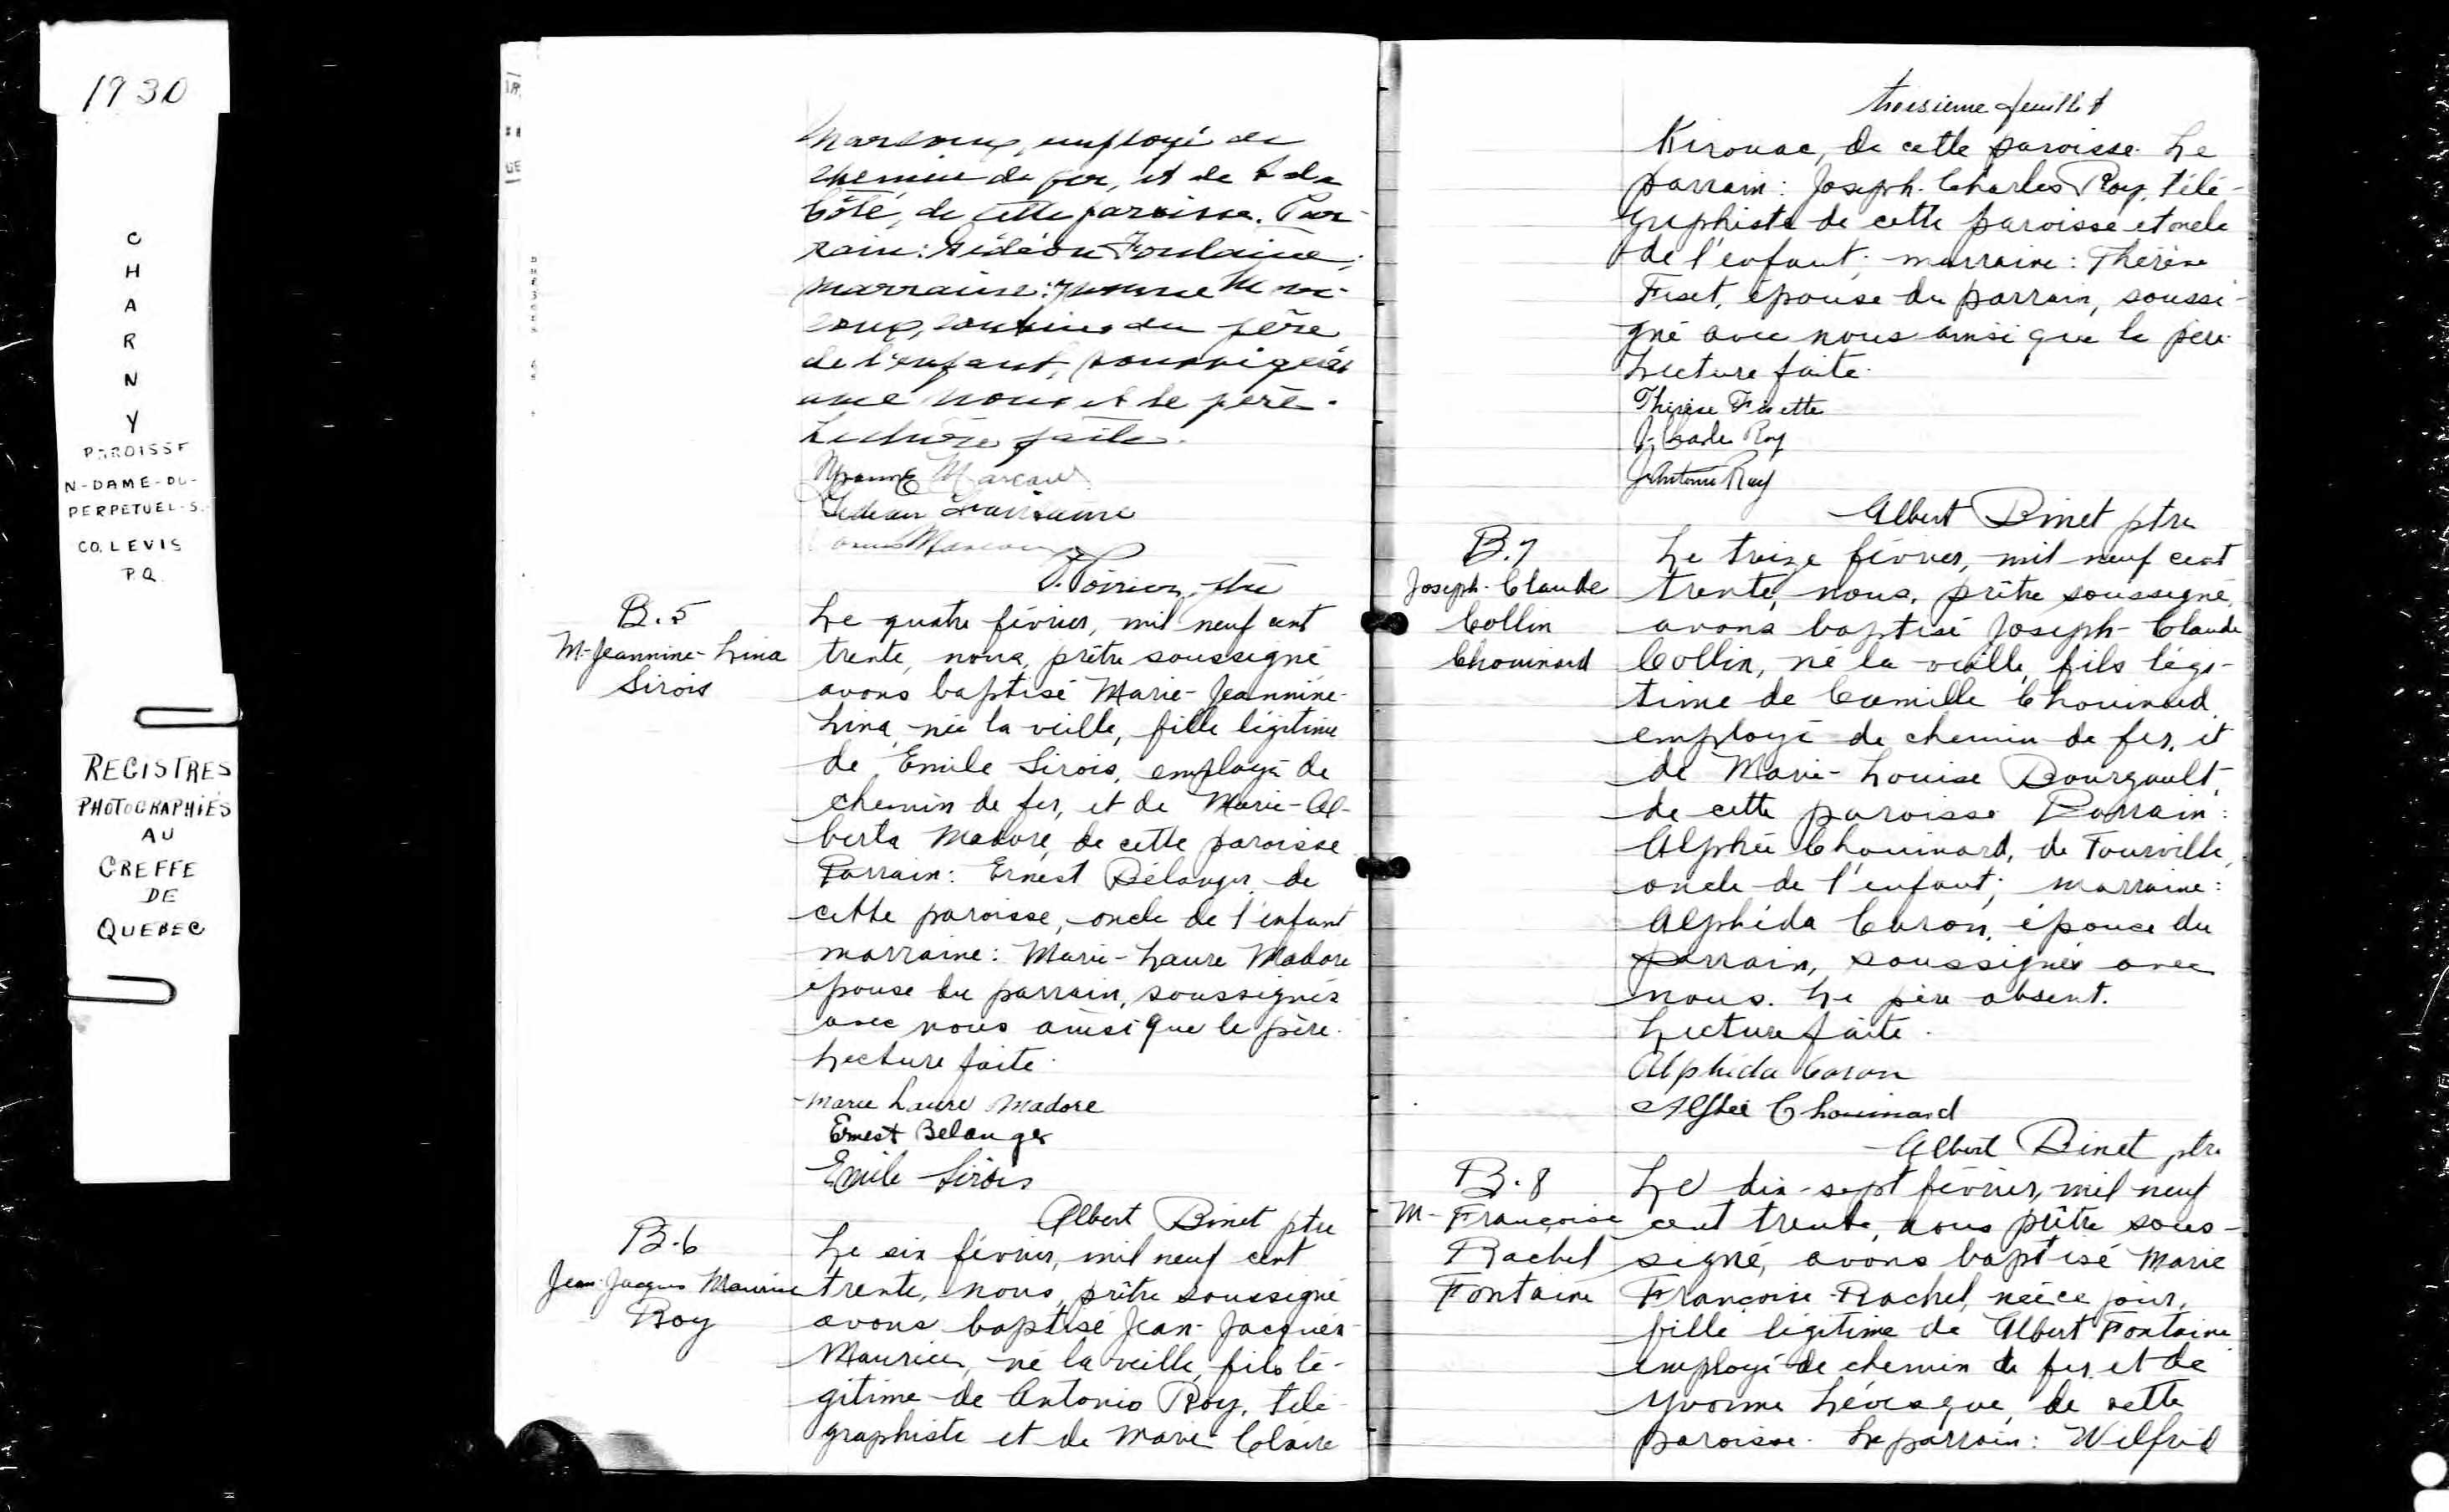 1930
CHARNY
PAROISSE
N-DAME-DU-
PERPETUEL-S.
CO. LEVIS
P.Q.
REGISTRES
PHOTOGRAPHIÉS
AU
GREFFE
DE
QUEBEC
employé de
chemin de fer, et de Ada
Côté, de cette paroisse. Par-
rain: Gédéon Fontaine;
marraine: Yvonne Mar-
coux, cousins du père
de l'enfant, soussignés
avec nous et le père.
Lecture faite.
Yvonne Marcoux
Gedeon
Marcoux
Poirier, ptre
B.5
M-Jeannine-Lina
Sirois
Le quatre février, mil neuf cent
trente, nous, prêtre soussigné
avons baptisé Marie-Jeannine-
Lina, née la veille, fille légitime
de Emile Sirois, employé de
chemin de fer, et de Marie-Al-
berta Madore, de cette paroisse
Parrain: Ernest Bélanger de
cette paroisse, oncle de l'enfant
marraine: Marie-Laure Madore
épouse du parrain, soussignés
avec nous ainsi que le père.
Lecture faite.
Marie Laure Madore
Ernest Belanger
Emile Sirois
Albert Binet ptre
B.6
Jean-Jacques Maurice
Roy
Le six février, mil neuf cent
trente, nous, prêtre soussigné
avons baptisé Jean-Jacques-
Maurice, né la veille, fils lé-
gitime de Antonio Roy, télé-
graphiste et de Marie-Claire
troisième feuillet
Kirouac, de cette paroisse. Le
parrain: Joseph-Charles Roy, télé-
graphiste de cette paroisse et oncle
de l'enfant; marraine: Thérèse
Fiset, épouse du parrain, soussi-
gné avec nous ainsi que le père.
Lecture faite.
Thérèse Fisette
J. Charles Roy
J Antonio Roy
Albert Binet ptre
B.7
Joseph-Claude
Collin
Chouinard
Le treize février, mil neuf cent
trente, nous, prêtre soussigné,
avons baptisé Joseph-Claude
Collin, né la veille, fils légi-
time de Camille Chouinard,
employé de chemin de fer, et
de Marie-Louise Bourgault,
de cette paroisse Parrain:
Alphée Chouinard, de Tourville,
oncle de l'enfant; marraine:
Alphéda Caron, épouse du
parrain, soussignés avec
nous. Le père absent.
Lecture faite.
Alphéda Caron
Alphée Chouinard
Albert Binet ptre
B.8
M-Françoise
Rachel
Fontaine
Le dix-sept février, mil neuf
cent trente, nous prêtre sous-
signé, avons baptisé Marie
Françoise-Rachel, née ce jour,
fille légitime de Albert Fontaine
employé de chemin de fer, et de
Yvonne Lévesque, de cette
paroisse. Le parrain: Wilfrid